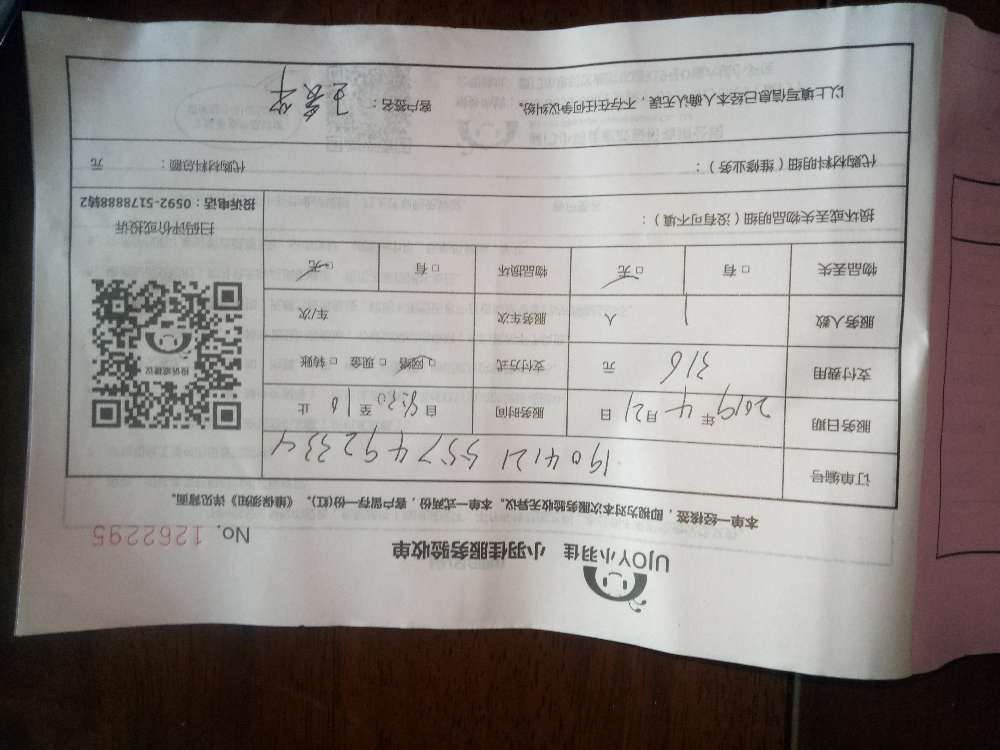 UJOY小羽佳 小羽佳服务验收单
No. 1262295
本单一经接签，即视为对本次服务验收无异议。本单一式两份，客户留存一份(红)。《维保须知》详见背面。
订单编号 190412155749233 4
服务日期 2019年4月21日 服务时间 自8:30至18止
支付费用 316元 支付方式 □网络 □现金 □转账
服务人数 1人 服务车次 车/次
物品丢失 □有 □无 物品损坏 □有 □无
投诉或建议
扫码评价或投诉
投诉电话：0592-5178888转2
损坏或丢失物品明细（没有可不填）：
代购材料明细（维修业务）： 代购材料总额： 元
以上填写信息已经本人确认无误，不存在任何争议纠纷。 客户签名：